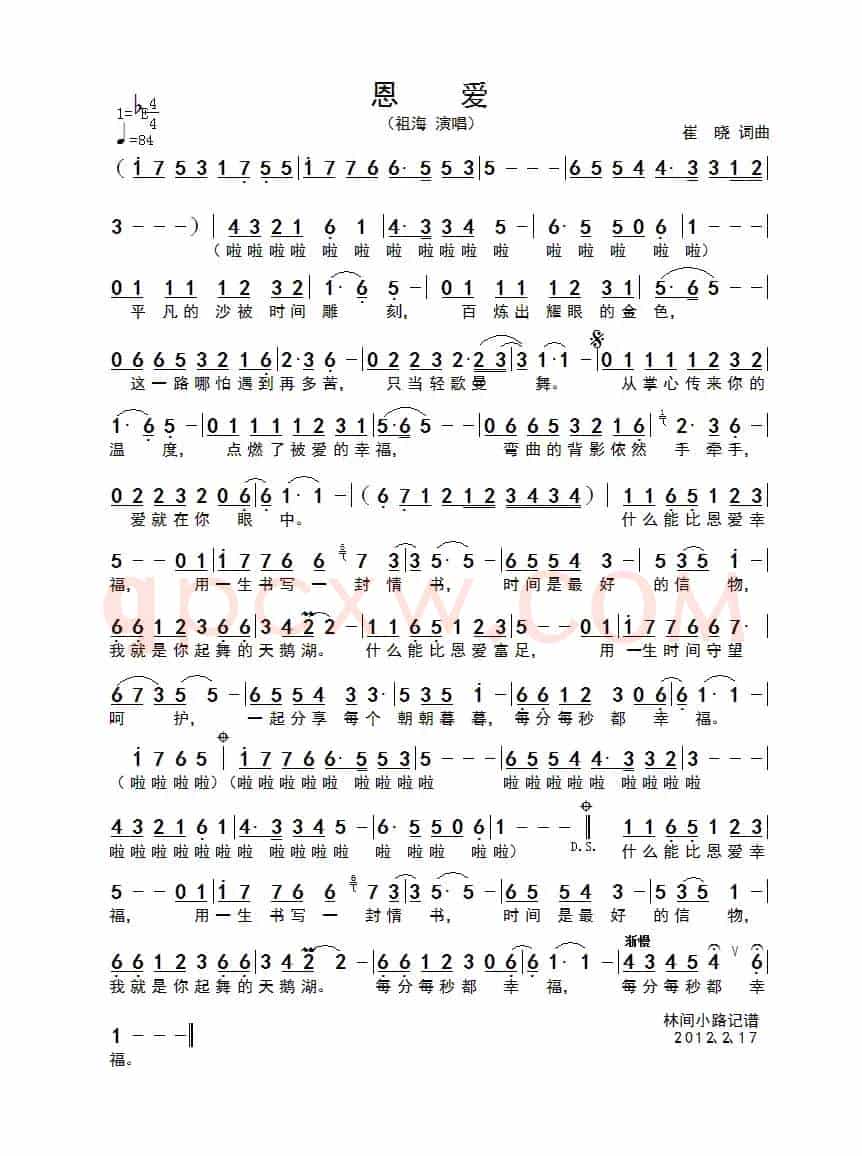 恩 爱
1=♭E 4/4
（祖海 演唱）
♩=84
崔 晓 词曲
（1 7 5 3 1 7 5 5|1 7 7 6 6· 5 5 3|5 - - -|6 5 5 4 4· 3 3 1 2|
3 - - -）|4 3 2 1 6 1|4· 3 3 4 5 -|6· 5 5 0 6|1 - - -|
（啦啦啦啦 啦 啦 啦 啦啦啦 啦 啦 啦 啦 啦 啦）
0 1 1 1 1 2 3 2|1· 6 5 -|0 1 1 1 1 2 3 1|5· 6 5 - -|
平 凡的 沙被 时间 雕 刻， 百 炼出 耀眼 的金 色，
0 6 6 5 3 2 1 6|2· 3 6 -|0 2 2 3 2·2 3|3 1· 1 -|0 1 1 1 1 2 3 2|
这一路哪怕遇到再多苦， 只当轻歌曼 舞。 从掌心传来你的
1· 6 5 -|0 1 1 1 1 2 3 1|5·6 5 - -|0 6 6 5 3 2 1 6|2· 3 6 -|
温 度， 点燃了被爱的幸福， 弯曲的背影依然 手 牵手，
0 2 2 3 2 0 6|6 1· 1 -|（6 7 1 2 1 2 3 4 3 4）|1 1 6 5 1 2 3|
爱就在你 眼 中。 什么能比恩爱幸
5 - - 0 1|1 7 7 6 6 7 3|3 5· 5 -|6 5 5 4 3 -|5 3 5 1 -|
福， 用一生书写一 封情 书， 时间是最 好 的信 物，
6 6 1 2 3 6 6|3 4 2 2 -|1 1 6 5 1 2 3|5 - - 0 1|1 7 7 6 6 7·|
我就是你起舞的天鹅湖。 什么能比恩爱富足， 用 一生时间守望
6 7 3 5 5 -|6 5 5 4 3 3|5 3 5 1 -|6 6 1 2 3 0 6|6 1· 1 -|
呵 护， 一起分享 每个 朝朝暮暮，每分每秒都 幸 福。
1 7 6 5|1 7 7 6 6· 5 5 3|5 - - -|6 5 5 4 4· 3 3 2|3 - - -|
（啦啦啦啦）（啦啦啦啦啦 啦啦啦 啦 啦啦啦啦啦 啦啦啦啦
4 3 2 1 6 1|4· 3 3 4 5 -|6· 5 5 0 6|1 - - -‖ 1 1 6 5 1 2 3|
啦啦啦啦啦啦啦啦啦啦啦 啦 啦啦 啦啦） D.S. 什么能比恩爱幸
5 - - 0 1|1 7 7 6 6 7 3|3 5· 5 -|6 5 5 4 3 -|5 3 5 1 -|
福， 用一生 书写 一 封情 书， 时间 是最 好 的信 物，
渐慢
6 6 1 2 3 6 6|3 4 2 2 -|6 6 1 2 3 0 6|6 1· 1 -|4 3 4 5 4 ∨ 6|
我就是你起舞的天鹅湖。 每分每秒都 幸 福， 每分每秒都 幸
1 - - -‖
福。
林间小路记谱
2012.2.17
qpcxw.com